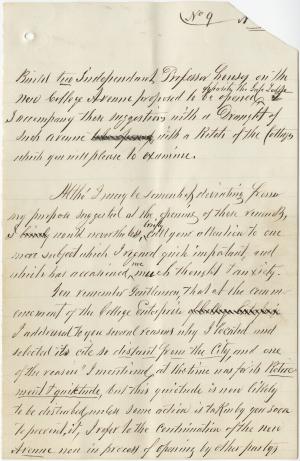 No 9
Build two Independant Professor houses on the
new College Avenue proposed to be opened,
I accompany these suggestions with a Draught of
such avenue with a Sketch of the College
which you will please to examine.
Altho' I may be somewhat deviating from
my purpose suggested at the opening of these remarks,
I would nevertheless briefly call your attention to one
more subject which I regard quite important, and
which has occasioned me much thought & anxiety.
You remember Gentlemen, that at the Comm-
encement of the College Enterprise
I addressed to you several reasons why I located and
selected its cite so distant from the City and one
of the reasons I mentioned, at that time was for its Retire
ment & quietude, but this quietude is now likely
to be obstructed, unless some action is taken by you soon
to prevent it, I refer to the Continuation of the new
Avenue now in process of opening by other partys